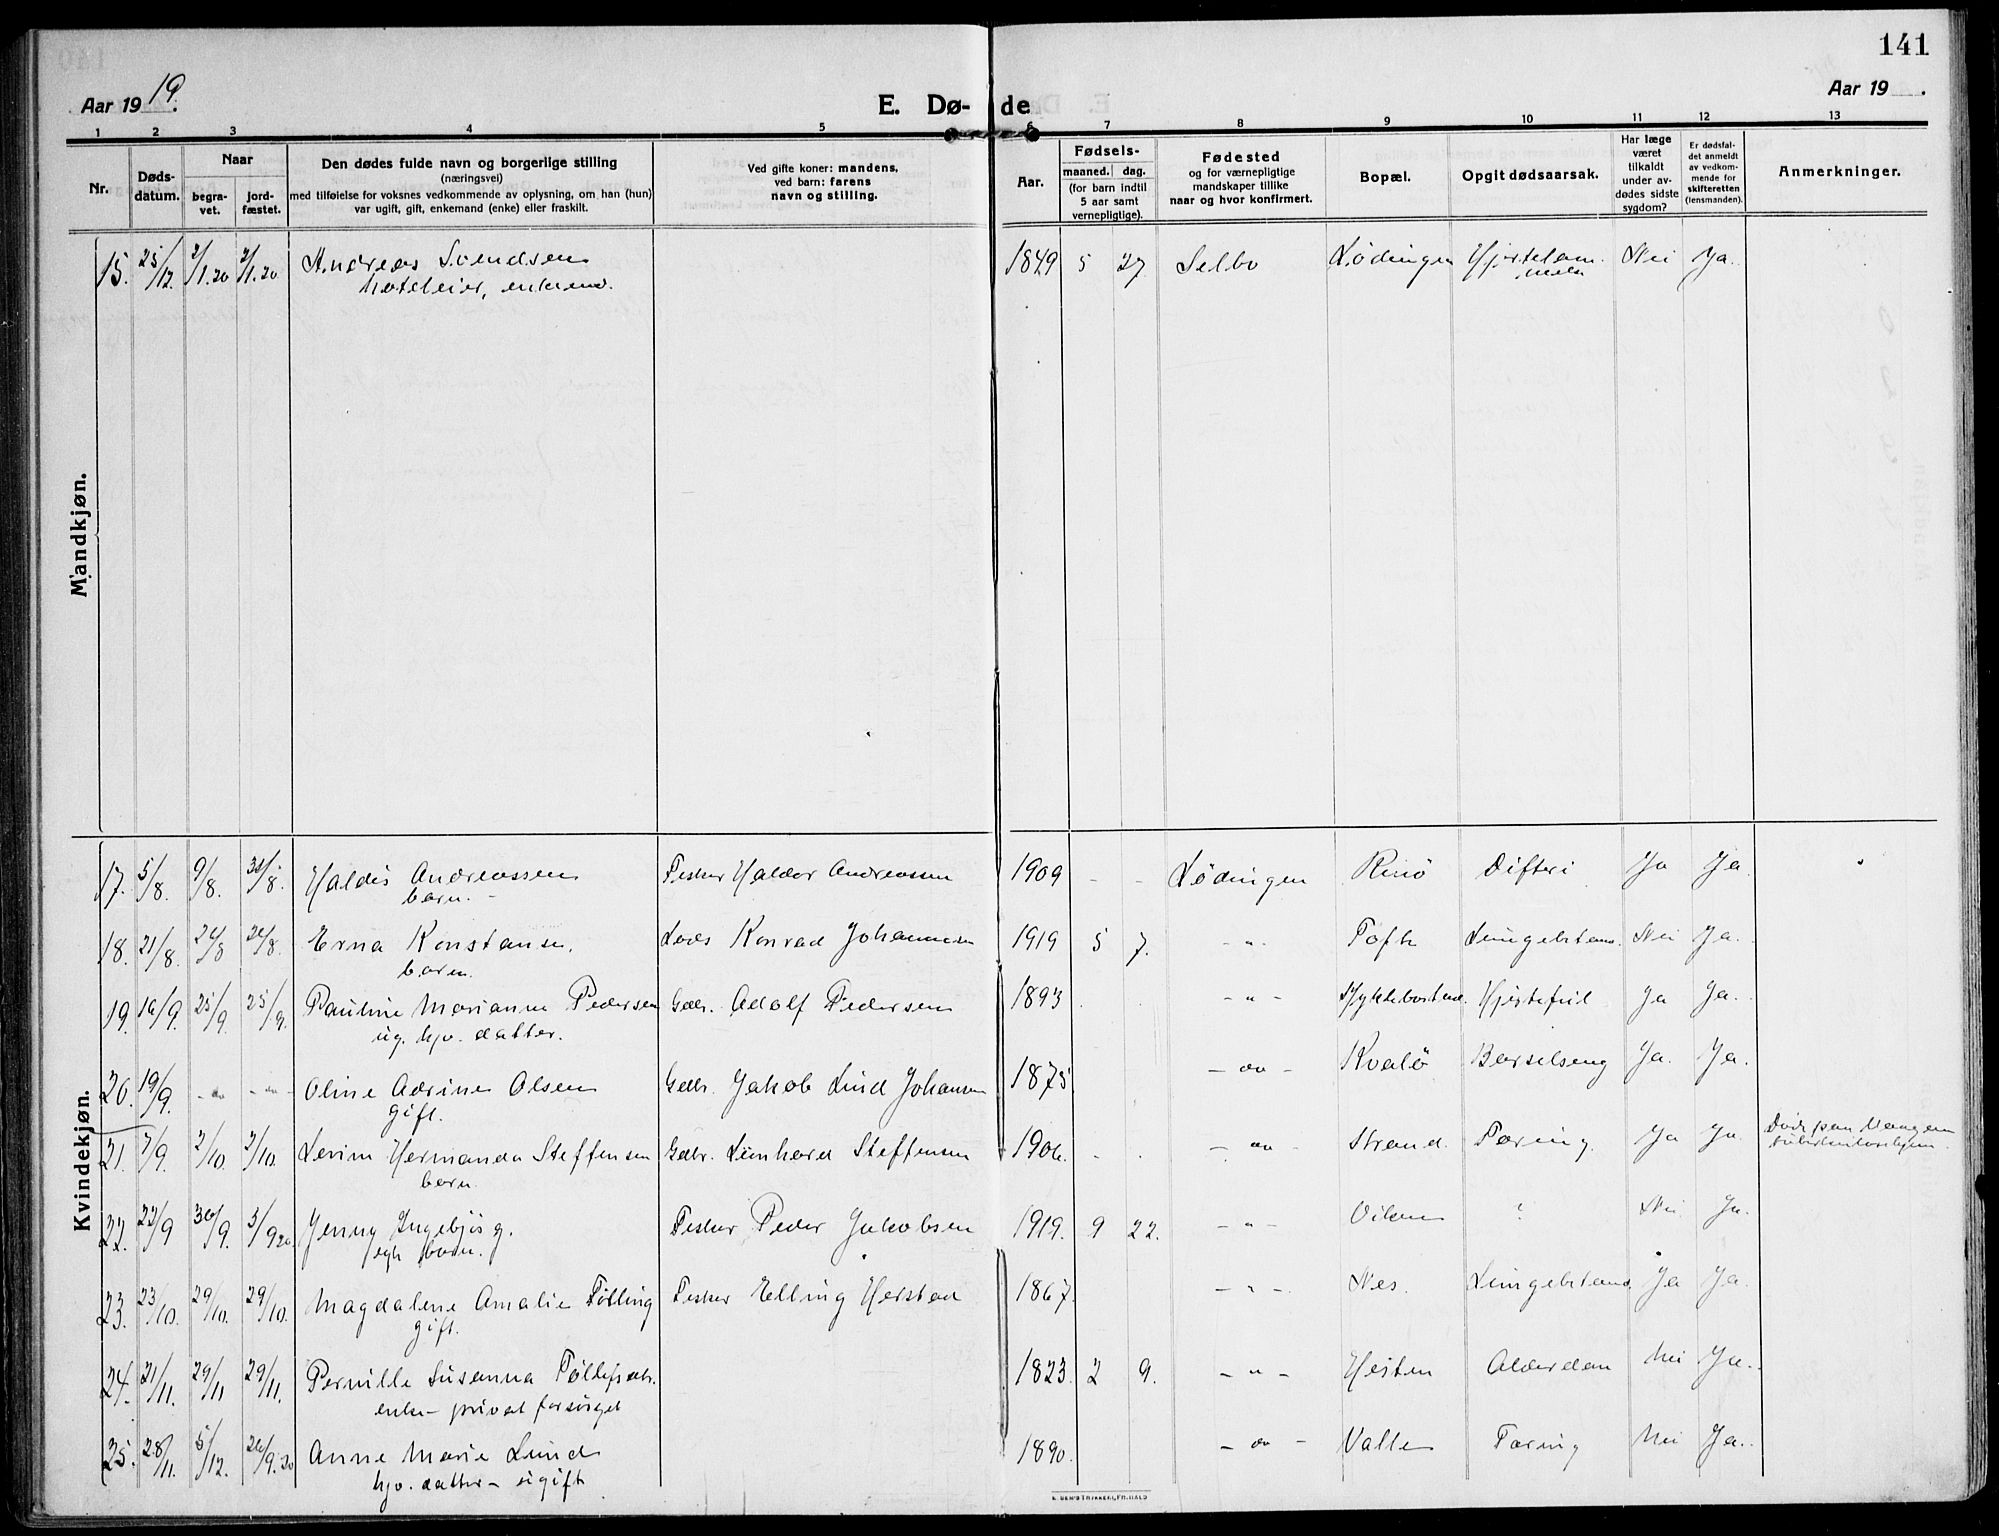 141
Aar 19 19.
E. Dø-
de
Aar 19 .
1 2 3 4 5 6 7 8 9 10 11 12 13
Nr.
Døds-
datum.
Naar
begra-
vet.
jord-
fæstet.
Den dødes fulde navn og borgerlige stilling
(næringsvei)
med tilføielse for voksnes vedkommende av oplysning, om han (hun)
var ugift, gift, enkemand (enke) eller fraskilt.
Ved gifte koner: mandens,
ved barn: farens
navn og stilling.
Aar.
Fødsels-
maaned. dag.
(for barn indtil
5 aar samt
vernepligtige).
Fødested
og for værnepligtige
mandskaper tillike
naar og hvor konfirmert.
Bopæl.
Opgit dødsaarsak.
Har læge
været
tilkaldt
under av-
dødes sidste
sygdom?
Er dødsfal-
det anmeldt
av vedkom-
mende for
skifteretten
(lensmanden).
Anmerkninger.
Mandkjøn.
15. 25/12. 2/1.20 2/1.20 Andreas Svendsen 1849 5 27 Selbo Lødingen Nei Ja.
hoteleier, enkem.
Kvindekjøn.
17. 5/8. 9/8. 31/8. Haldis Andreassen Fisker Haldor Andreassen 1909 - - Lødingen Rinø Difteri Ja Ja
barn. -
18. 21/8. 24/8 24/8. Erna Konstanse, Lods Konrad Johannesen 1919 5 7. - " - Tofte Lungebetænd. Nei Ja.
barn.
19. 16/9. 25/9. 25/9. Pauline Marianne Pedersen Gdbr. Adolf Pedersen 1893 - " - Hjertefeil Ja Ja.
ug. hjv. datter.
20. 19/9. - " - - " - Oline Adrine Olsen Gdbr. Jakob Lund Johansen 1875 - " - Kvalø Barselseng Ja. Ja.
gift.
21. 7/9. 2/10. 2/10. Hermanda Steffensen Gdbr. Steffensen 1906. - " - Strand. Tæring. Ja Ja.
barn.
22. 22/9 30/9. 5/9 20 Jenny Ingebjørg. Fisker Peder Jakobsen 1919. 9 22. - " - ? Nei. Ja.
egte barn.
23. 23/10. 29/10. 29/10. Magdalene Amalie Tølling Fisker Elling Herstad 1867. - " - Nes. Lungebetænd. Ja Ja.
gift.
24. 21/11. 29/11 29/11. Pernille Susanna 1823. 2 9. - " - Hesten Alderdom Nei Ja.
enke - privat forsørget
25. 28/11. 5/12. 26/9.20 Anne Marie Lund 1890. - " - Valle Tæring Nei Ja.
hjv. datter - ugift